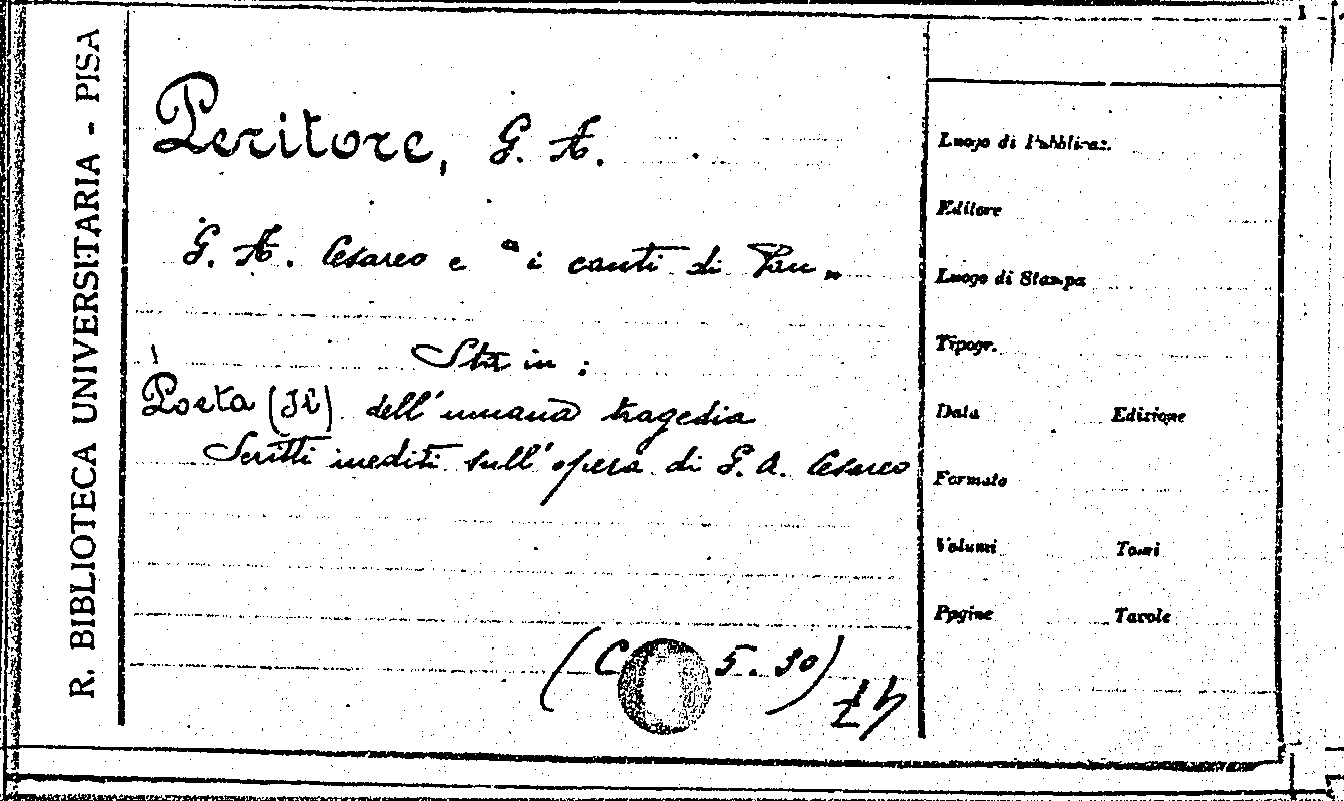 R. BIBLIOTECA UNIVERSITARIA - PISA
Peritore, G. A.
G. A. Cesareo e "i canti di Pan"
Sta in :
Poeta (Il) dell'umana tragedia
Scritti inediti sull'opera di G. A. Cesareo
(C 5. 30)
Luogo di Pubblicaz.
Editore
Luogo di Stampa
Tipogr.
Data Edizione
Formato
Volumi Tomi
Pagine Tavole